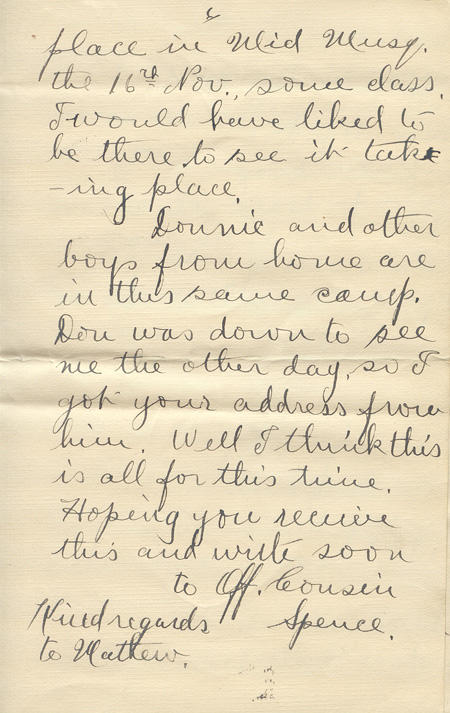 6
place in Mid Musq.
the 16rd Nov., some class.
I would have liked to
be there to see it take
-ing place.
Donnie and other
boys from home are
in this same camp.
Don was down to see
me the other day, so I
got your address from
him. Well I think this
is all for this time.
Hoping you receive
this and write soon
to Aff. Cousin
Kind regards Spence.
to Mathew.